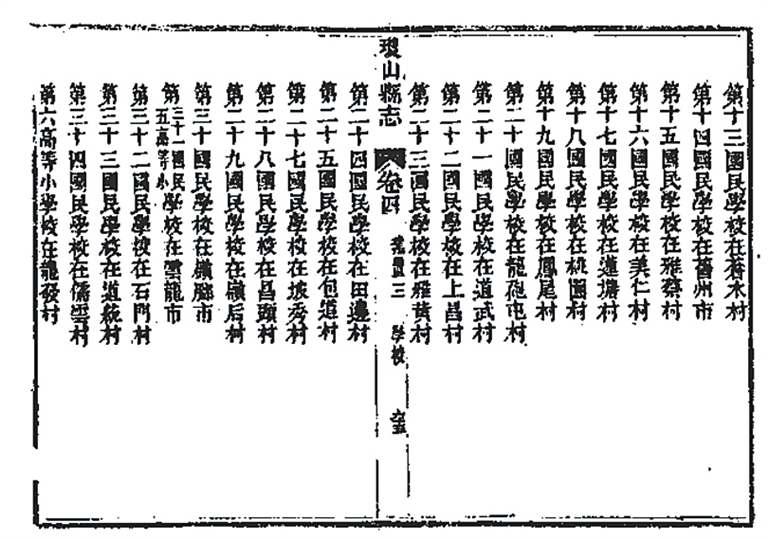 第十三國民學校在蒼木村
第十四國民學校在舊州市
第十五國民學校在雅蔡村
第十六國民學校在美仁村
第十七國民學校在蓮塘村
第十八國民學校在桃園村
第十九國民學校在鳳尾村
第二十國民學校在龍砲屯村
第二十一國民學校在道武村
第二十二國民學校在上昌村
第二十三國民學校在雅黄村
瓊山縣志
卷四
三 學校
第二十四國民學校在田邊村
第二十五國民學校在包道村
第二十七國民學校在坡秀村
第二十八國民學校在昌頭村
第二十九國民學校在嶺后村
第三十國民學校在嶺腳市
第三十一國民五高等小學校在雲龍市
第三十二國民學校在石門村
第三十三國民學校在道統村
第三十四國民學校在儒雲村
第六高等小學校在龍發村